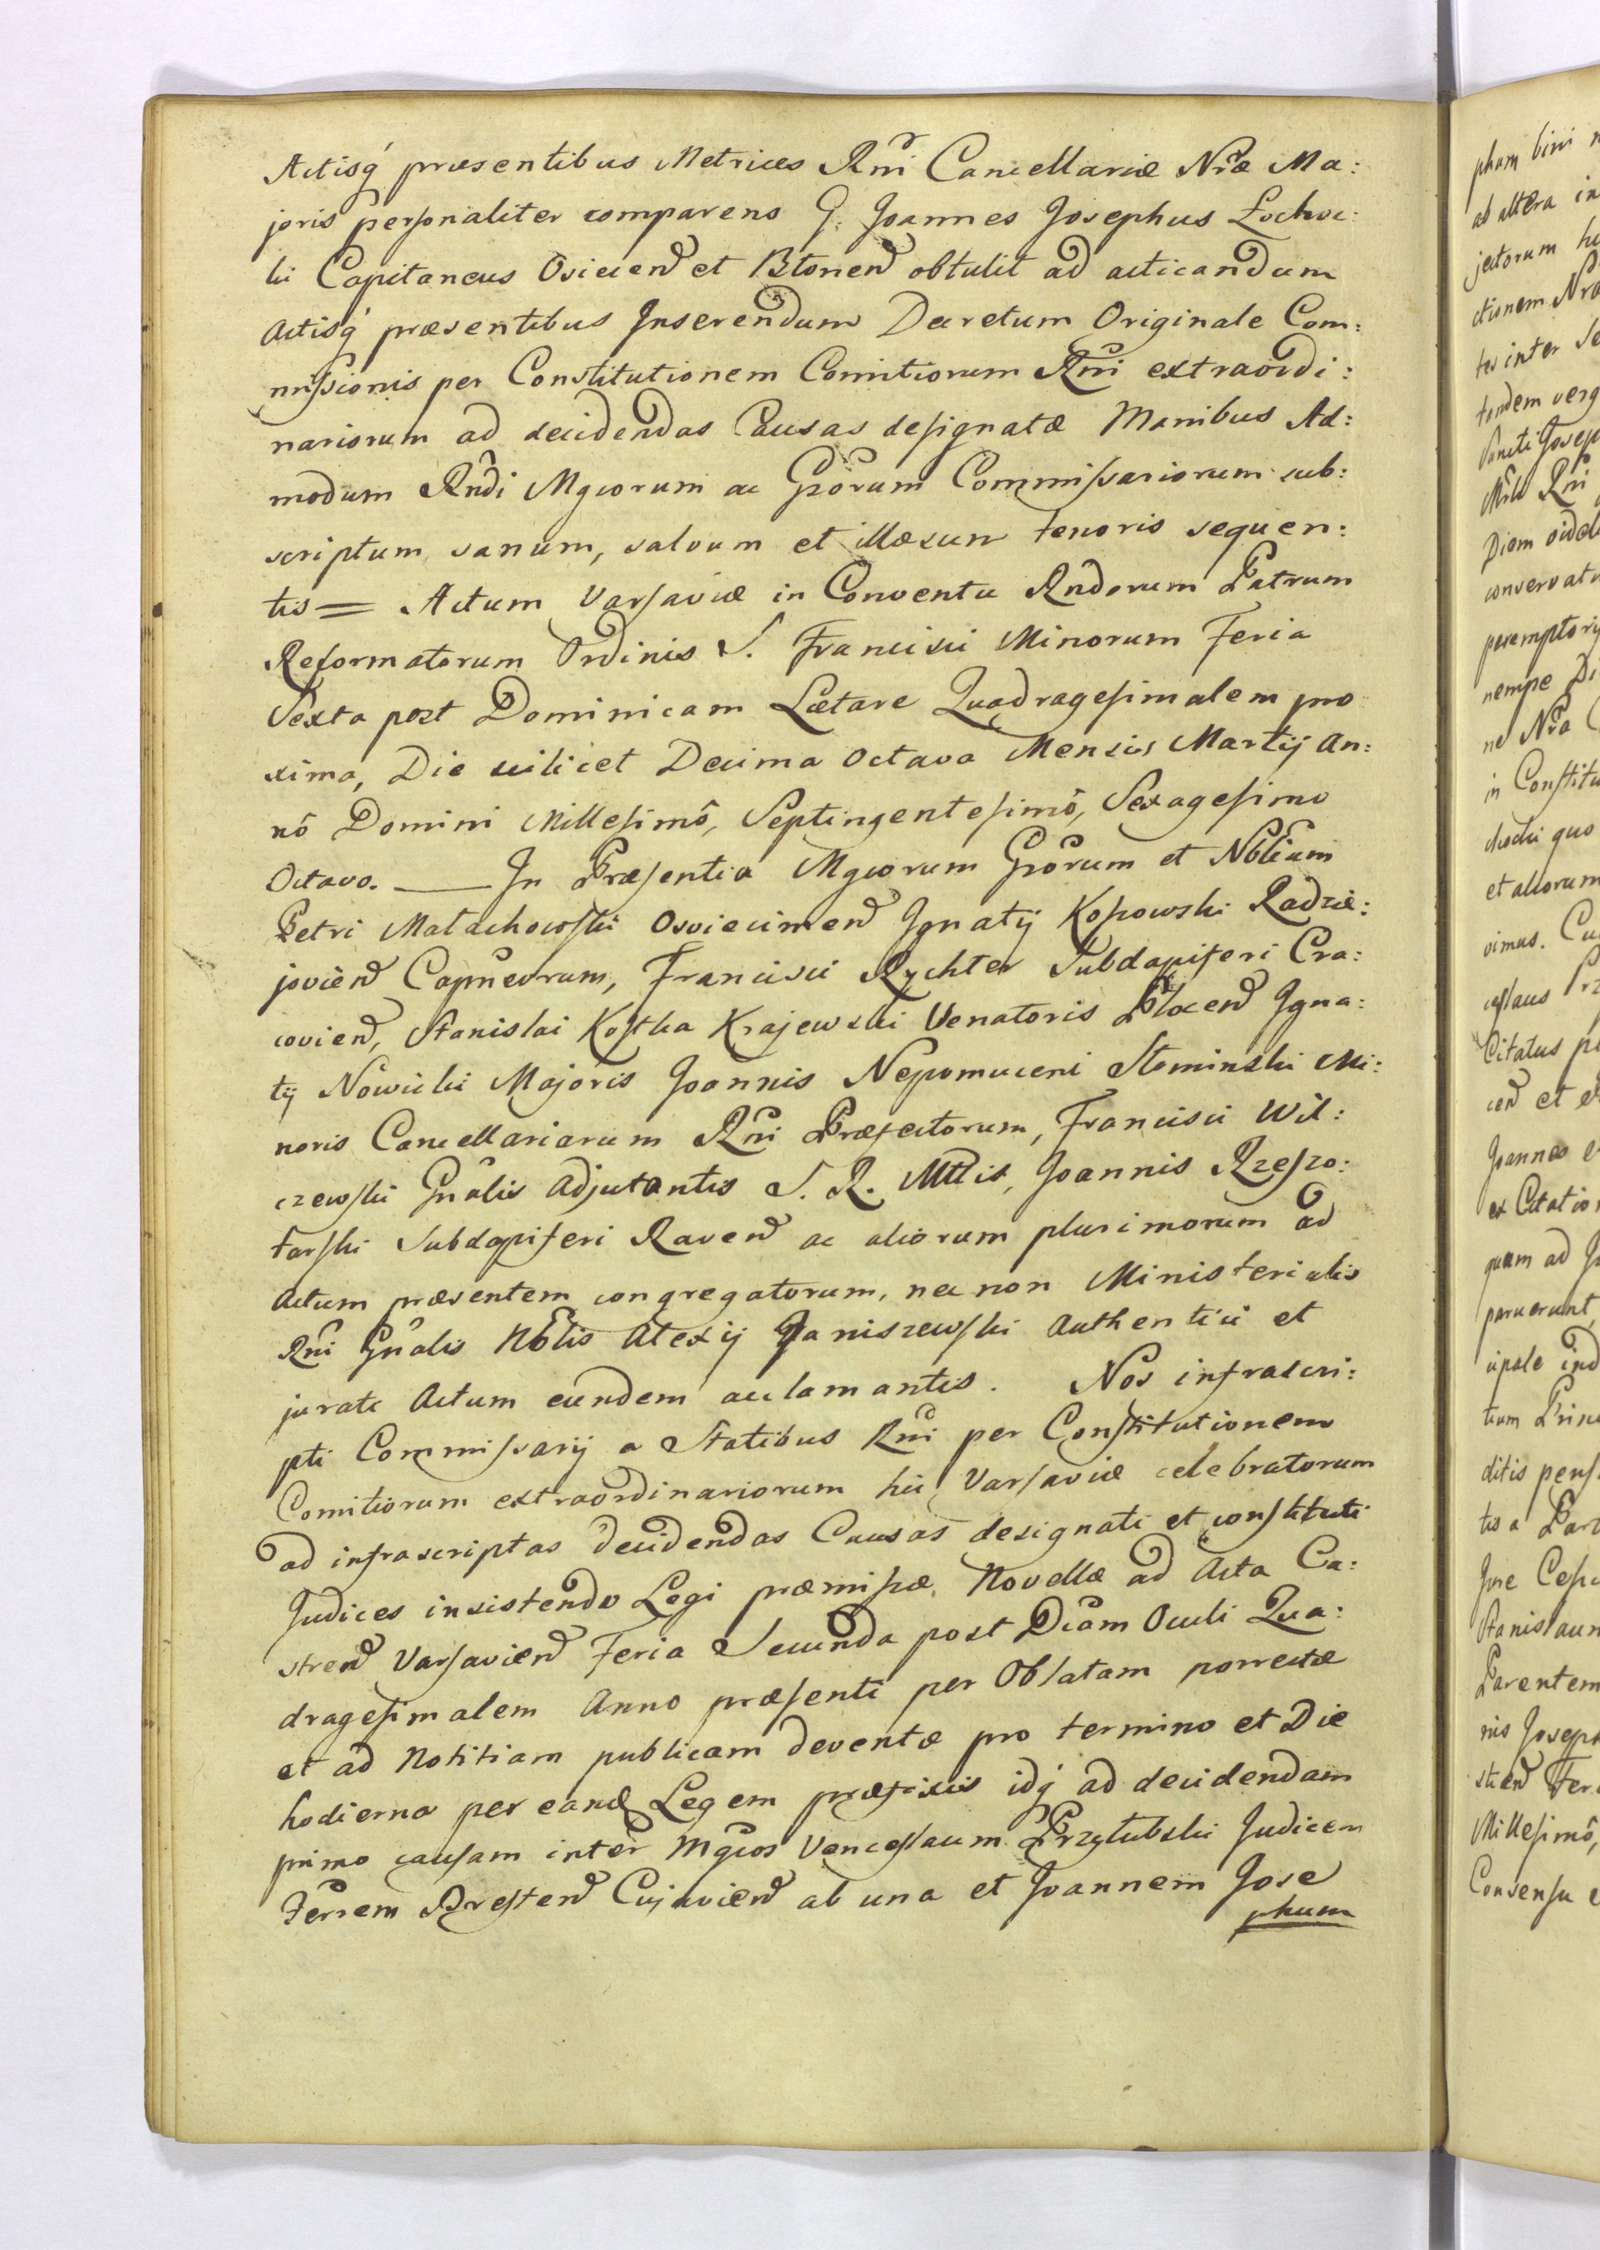 Actisq́ præsentibus Metrices Rni Cancellariæ Nræ Ma:
joris personaliter comparens G. Joannes Josephus Lochoc:
ki Capitaneus Osiecen̄ et Btonen̄ obtulit ad acticandum
Actisq́ præsentibus Inserendum Decretum Originale Com:
missionis per Constitutionem Comitiorum Rni extraordi:
nariorum ad decidendas Causas designatæ Manibus Ad:
modum Rndi Mgcorum ac Grorum Commissariorum sub:
scriptum, sanum, salvum et illæsum tenoris sequen:
tis = Actum Varsaviæ in Conventu Rndorum Patrum
Reformatorum Ordinis S. Francisci Minorum Feria
Sexta post Dominicam Lætare Quadragesimalem pro
xima, Die scilicet Decima Octava Mensis Martij An:
nô Domini Millesimô, Septingentesimô, Sexagesimo
Octavo. —— In Præsentia Mgcorum Grorum et Nblium
Petri Małachowski Osviecimen̄ Ignatij Kossowski Radzie:
jovien̄ Capneorum, Francisci Rychter Subdapiferi Cra:
covien̄, Stanislai Kostka Krajewski Venatoris Plocen̄ Igna:
tij Nowicki Majoris Joannis Nepomuceni Słominski Mi:
noris Cancellariarum Rni Præfectorum, Francisci Wil:
czewski Gnalis Adjutantis S. R. Mttis, Joannis Rzeszo:
tarski Subdapiferi Raven̄ ac aliorum plurimorum ad
Actum præsentem congregatorum, nec non Ministerialis
Rni Gnalis Nblis Alexij Janiszewski Authentici et
jurati Actum eundem acclamantis. Nos infrascri:
pti Commissarij a Statibus Rni per Constitutionem
Comitiorum extraordinariorum hic Varsaviæ celebratorum
ad infrascriptas decidendas Causas designati et constituti
Judices insistendo Legi præmissæ, Novellæ ad Acta Ca:
stren̄ Varsavien̄ Feria Secunda post Dicam Oculi Qua:
dragesimalem Anno præsenti per Oblatam porrectæ
et ad Notitiam publicam deventæ pro termino et Die
hodierna per eand Legem præfixis idq́ ad decidendam
primo causam inter Mgcos Venceslaum Przyłubski Judicem
Terrem Bresten̄ Cujavien̄ ab una et Joannem Jose
phum